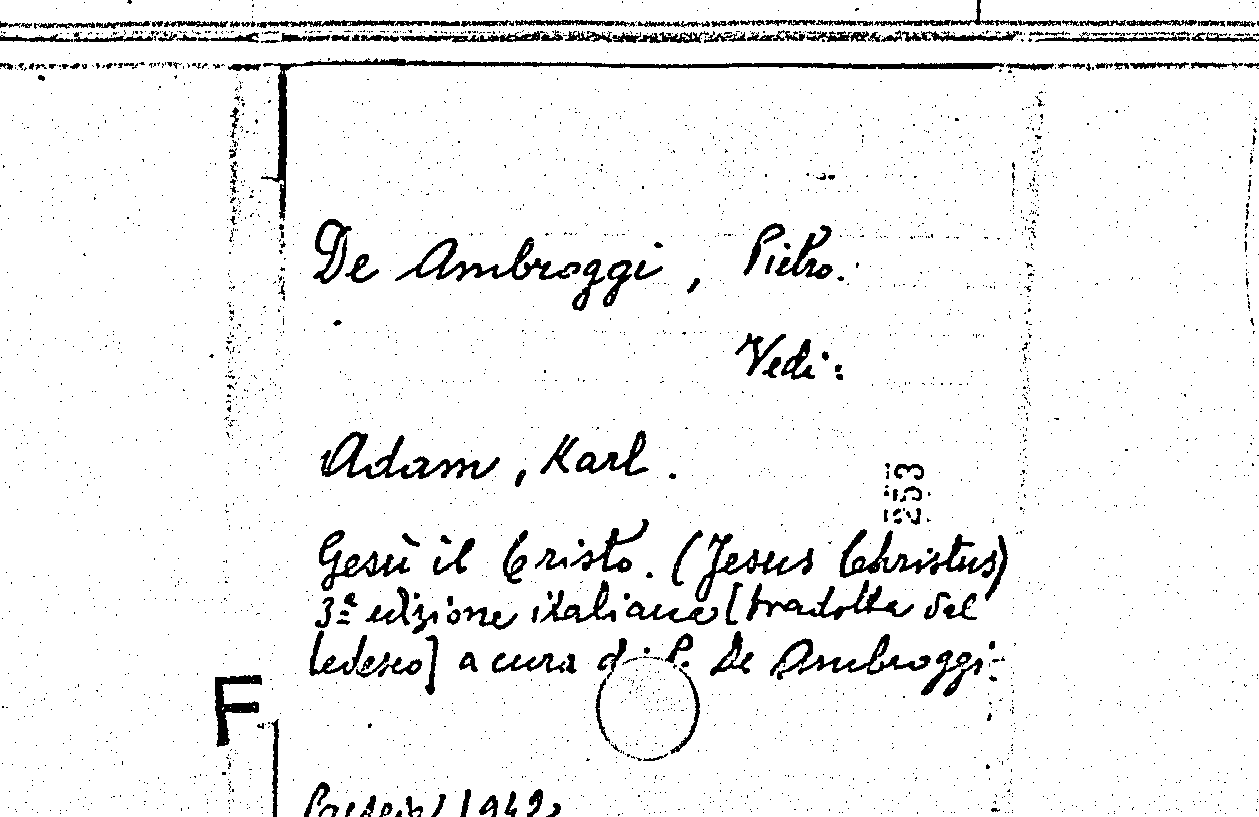 De Ambroggi, Pietro.
Vedi:
Adam, Karl.
253
Gesù il Cristo. (Jesus Christus)
3ª edizione italiana [tradotta dal
tedesco] a cura di P. De Ambroggi.
F
1942